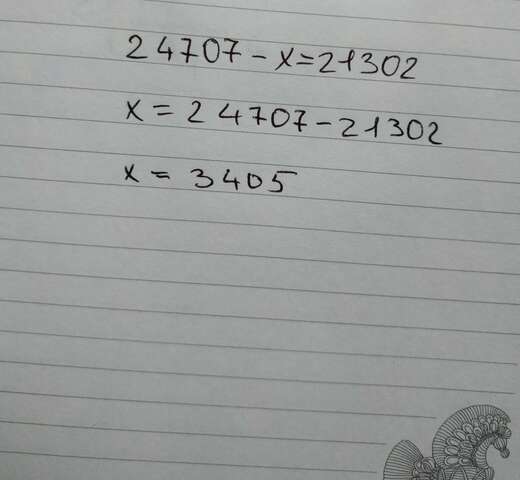 24707 - x = 21302
x = 24707 - 21302
x = 3405